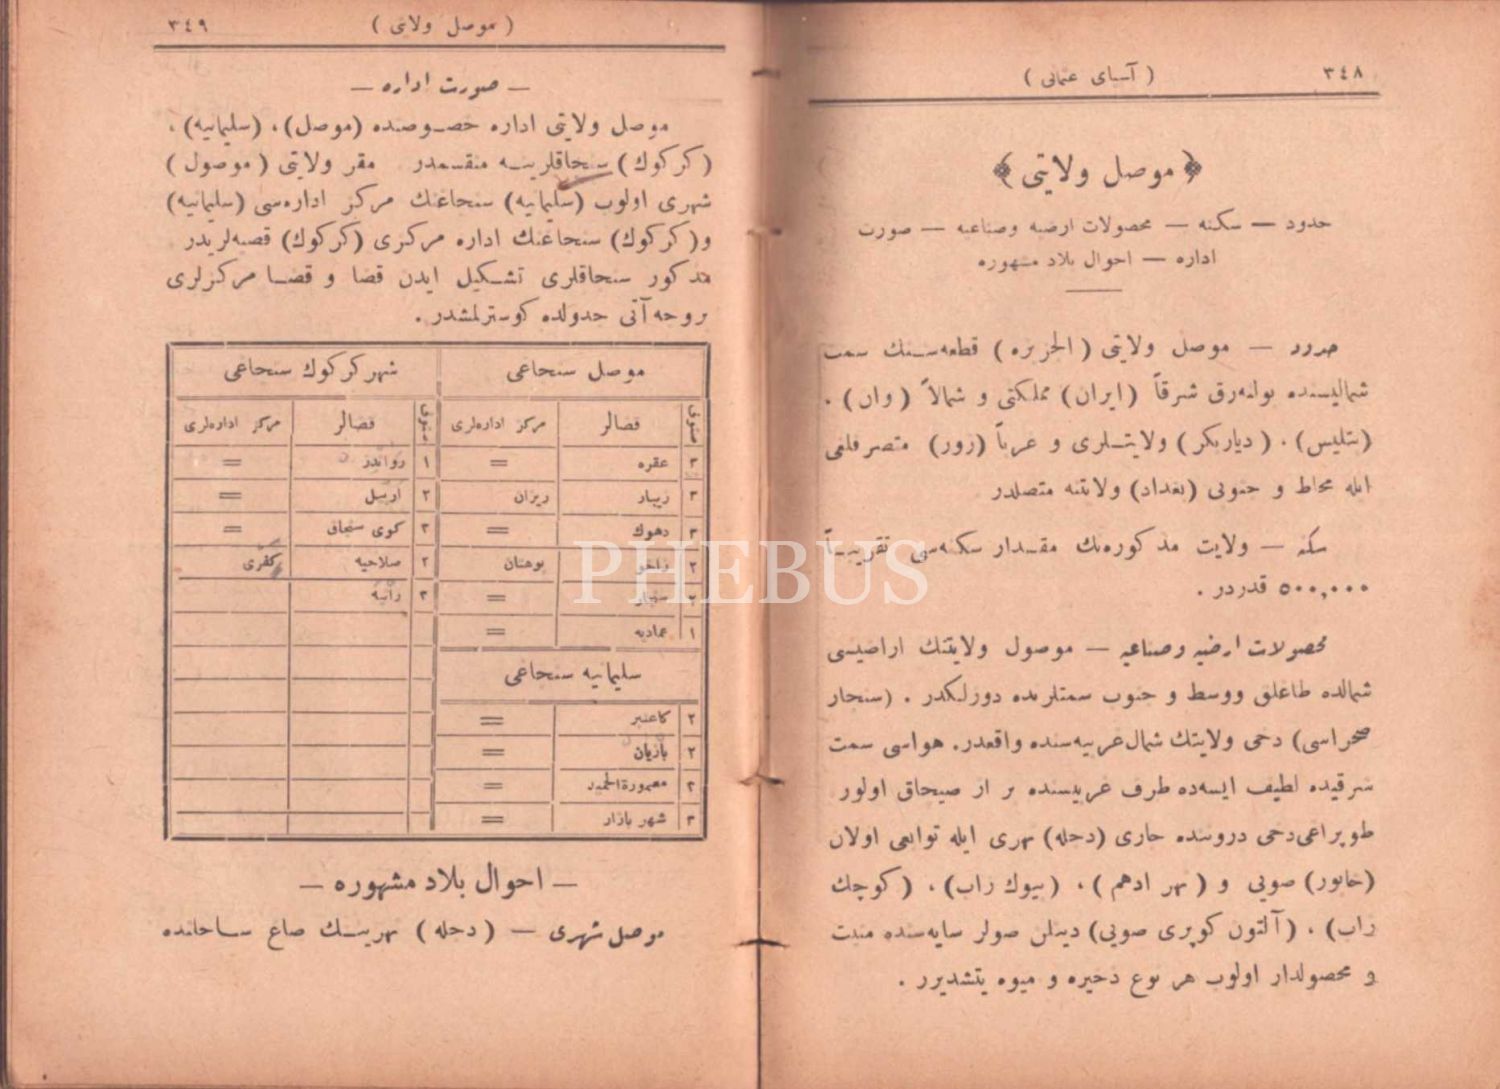 ٣٤٨ ( آسیای عثمانی )
﴿ موصل ولایتی ﴾
حدود — سکنه — محصولات ارضیه وصناعیه — صورت
اداره — احوال بلاد مشهوره
حدود — موصل ولایتی ( الجزیره ) قطعه‌سنك سمت
شمالیسنده بولنه‌رق شرقاً ( ایران ) مملکتی و شمالاً ( وان ) ،
( بتلیس ) ، ( دیاربکر ) ولایتلری و غرباً ( زور ) متصرفلغی
ایله محاط و جنوبی ( بغداد ) ولایتنه متصلدر
سکنه — ولایت مذکوره‌نك مقدار سکنه‌سی تقریباً
٥٠٠,٠٠٠ قدردر .
محصولات ارضیه وصناعیه — موصول ولایتنك اراضیسی
شمالده طاغلق ووسط و جنوب سمتلرنده دوزلکدر . ( سنجار
صحراسی ) دخی ولایتك شمال غربیه‌سنده واقعدر. هواسی سمت
شرقیده لطیف ایسه‌ده طرف غربیسنده بر از صیجاق اولور
طوپراغی‌دخی دروننده جاری ( دجله ) نهری ایله توابعی اولان
( خابور ) صویی و ( نهر ادهم ) ، ( بیوك زاب ) ، ( کوچك
زاب ) ، ( آلتون کوپری صویی ) دینلن صولر سایه‌سنده منبت
و محصولدار اولوب هر نوع ذخیره و میوه یتشدیرر .
( موصل ولایتی ) ٣٤٩
— صورت اداره —
موصل ولایتی اداره خصوصنده ( موصل ) ، ( سلیمانیه ) ،
( کرکوك ) سنجاقلرینه منقسمدر مقر ولایتی ( موصول )
شهری اولوب ( سلیمانیه ) سنجاغنك مرکز اداره‌سی ( سلیمانیه )
و( کرکوك ) سنجاغنك اداره مرکزی ( کرکوك ) قصبه‌لریدر
مذکور سنجاقلری تشکیل ایدن قضا و قضا مرکزلری
بروجه آتی جدولده کوسترلمشدر .
موصل سنجاغی شهر کرکوك سنجاغی
صنوف قضالر مرکز اداره‌لری صنوف قضالر مرکز اداره‌لری
٣ عقره = ١ رواندز =
٣ زیبار ریزان ٢ اربیل =
٣ دهوك = ٢ کوی سنجاق =
٢ زاخو بوهتان ٢ صلاحیه کفری
٢ سنجار = ٣ رانیه
١ عمادیه =
سلیمانیه سنجاغی
٢ کلعنبر =
٢ بازیان =
٢ معمورةالحمید =
٣ شهر بازار =
— احوال بلاد مشهوره —
موصل شهری — ( دجله ) نهرینك صاغ ساحلنده
PHEBUS